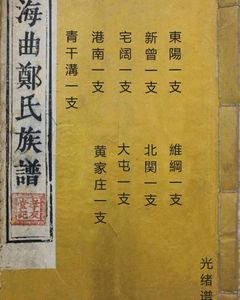 東陽一支
維綱一支
新曾一支
北関一支
宅阔一支
大屯一支
港南一支
黄家庄一支
青干溝一支
海曲鄭氏族譜
光绪谱